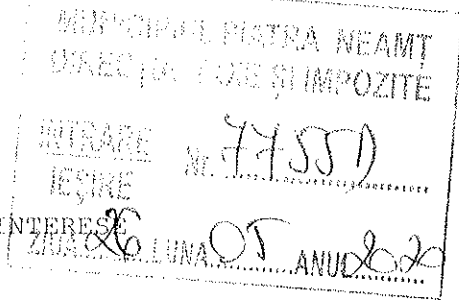 MUNICIPIUL PIATRA NEAMȚ
DIRECȚIA TAXE ȘI IMPOZITE
INTRARE Nr. 77550
IEȘIRE
INTERESE
ZIUA 26 LUNA 05 ANUL 2020